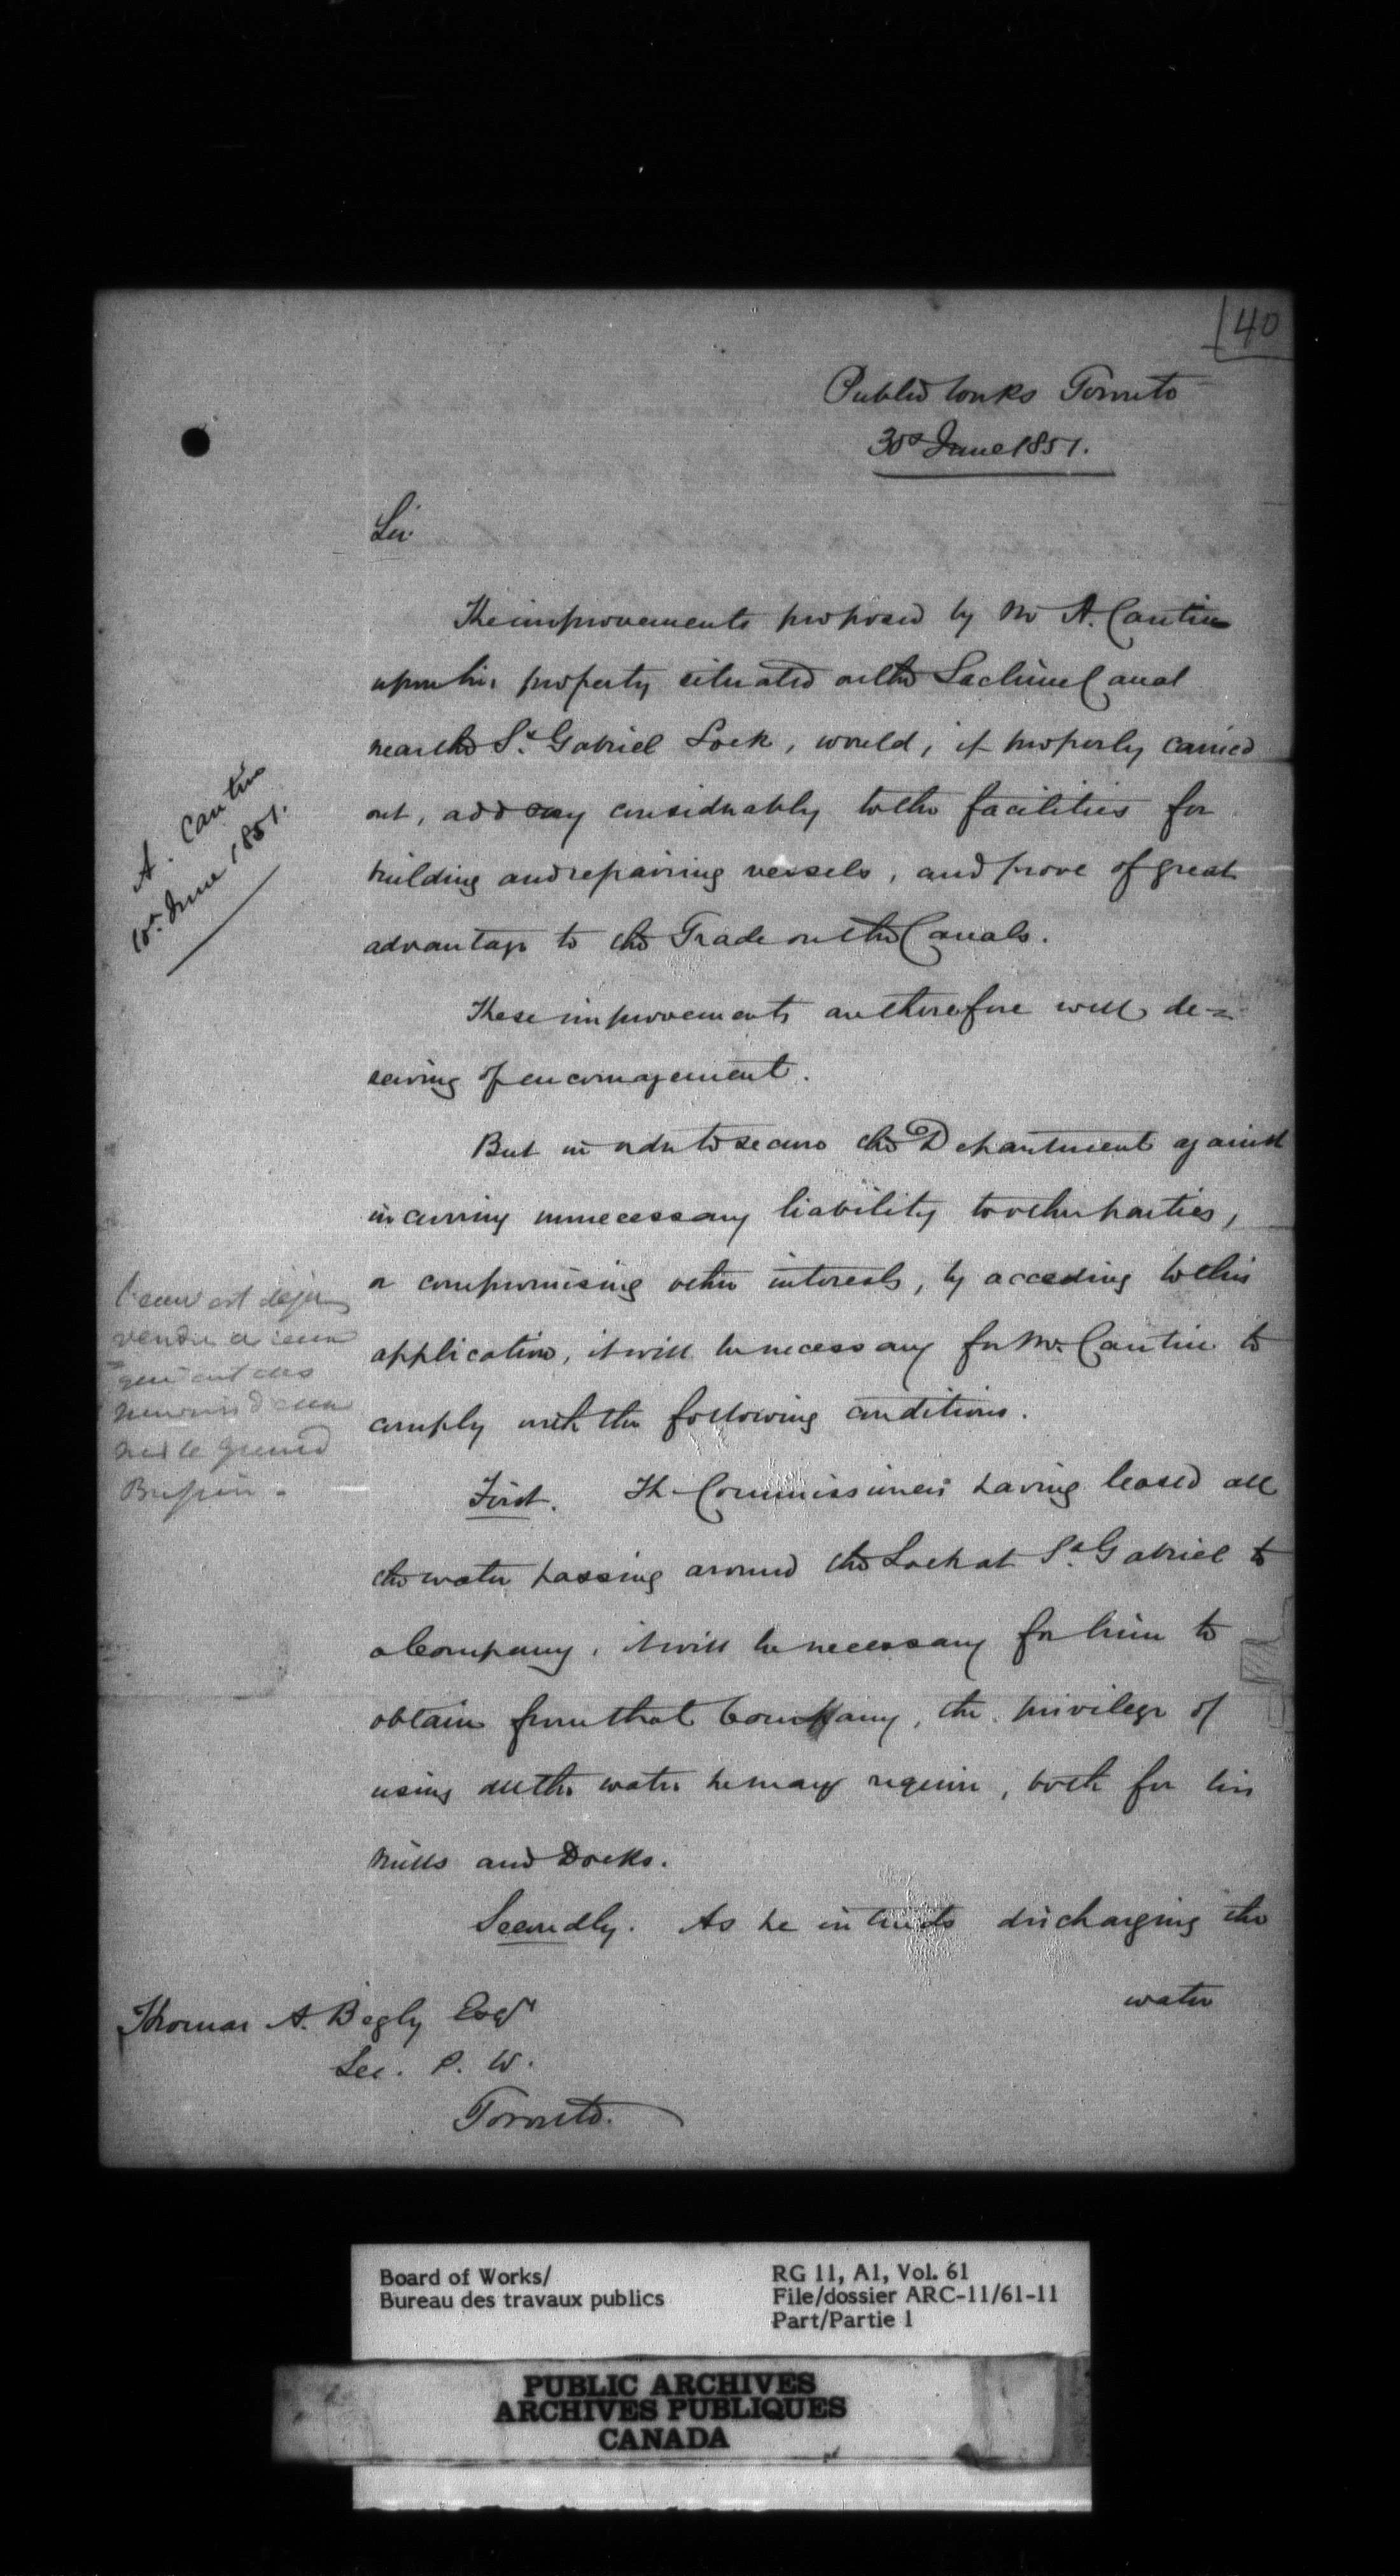 40
Public Works Toronto
30th June 1851.
Sir
The improvements proposed by Mr A. Cantin
upon his property situated on the Lachine Canal
near the St. Gabriel Lock, would, if properly carried
out, add very considerably to the facilities for
building and repairing vessels, and prove of great
advantage to the Trade on the Canals.
These improvements are therefore well de=
serving of encouragement.
But in order to secure the Department against
incurring unnecessary liability to other parties,
or compromising other interests, by acceding to this
application, it will be necessary for Mr. Cantin to
comply with the following conditions.
First. The Commissioners having leased all
the water passing around the Lock at St. Gabriel to
a Company, it will be necessary for him to
obtain from that Company, the privilege of
using all the water he may require, both for his
Mills and Docks.
Secondly. As he intends discharging the
water
Thomas A. Begly Esqr
Sec. P. W.
Toronto.
A. Cantin
June 1851.
l'eau est déjà
vendue à ceux
qui ont des
sur le grand
Bassin.
Board of Works/
Bureau des travaux publics
RG 11, A1, Vol. 61
File/dossier ARC-11/61-11
Part/Partie 1
PUBLIC ARCHIVES
ARCHIVES PUBLIQUES
CANADA